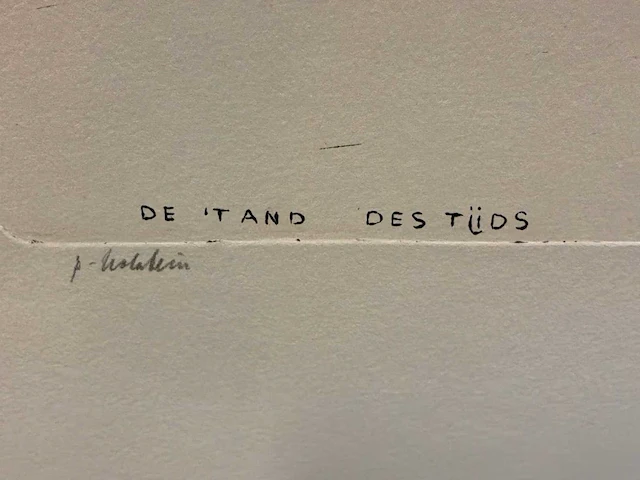 DE 'TAND DES TIJDS
p. Holstein